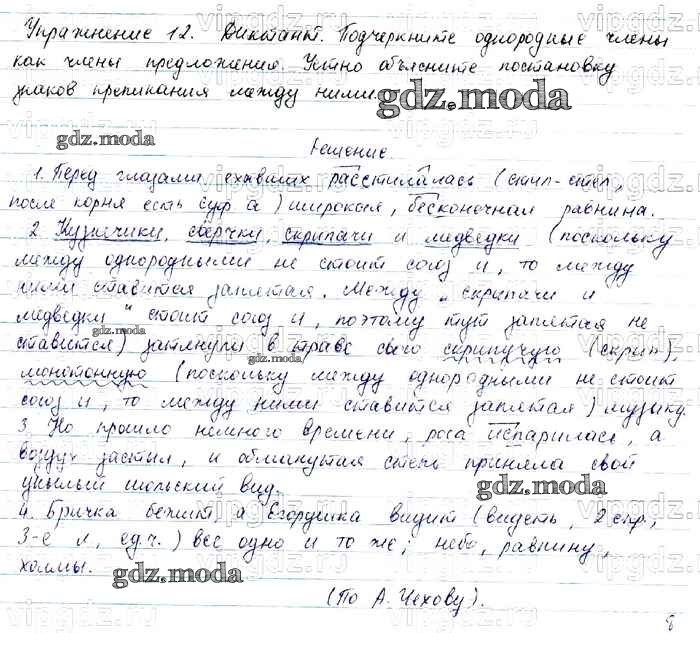 Упражнение 12. Диктант. Подчеркните однородные члены
как члены предложения. Устно объясните постановку
знаков препинания между ними.
gdz.moda
gdz.moda
Решение
1. Перед глазами ехавших расстилалась (стил-стел,
после корня есть суф а) широкая, бесконечная равнина.
2 Кузнечики, сверчки, скрипачи и медведки (поскольку
между однородными не стоит союз и, то между
ними ставится запятая. Между „скрипачи и
медведки" стоит союз и, поэтому тут запятая не
gdz.moda
ставится) затянули в траве свою скрипучую (скрип),
монотонную (поскольку между однородными не стоит
союз и, то между ними ставится запятая) музыку.
3. Но прошло немного времени, роса испарилась, а
воздух застыл, и обманутая степь приняла свой
унылый июльский вид.
gdz.moda
4. Бричка бежит, а Егорушка видит (видеть, 2 спр,
3-е л, ед.ч.) все одно и то же; небо, равнину,
холмы.
gdz.moda
(По А. Чехову).
8